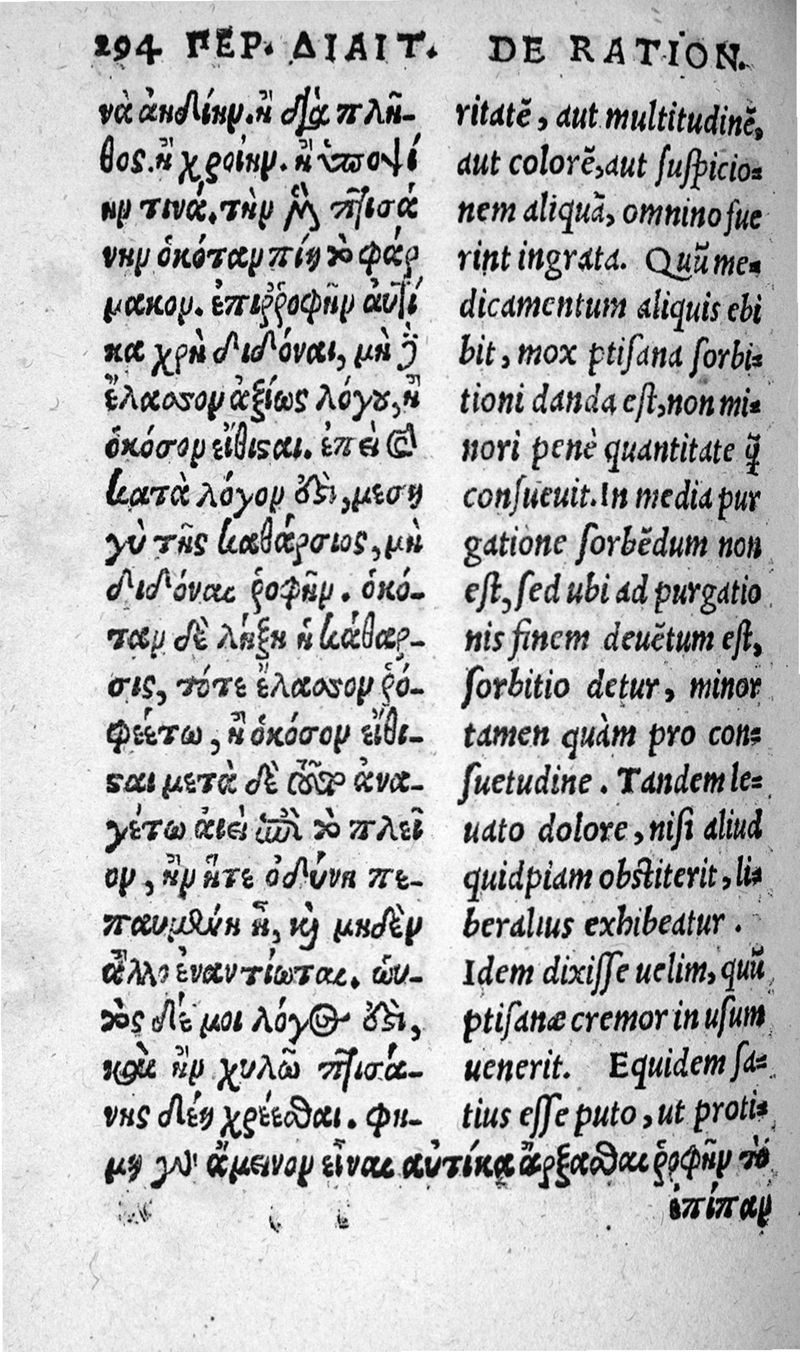 294 ΠΕΡ. ΔΙΑΙΤ. DE RATION.
νὰ ἀηδίην. ἢ διὰ πλῆ-
θος. ἢ χροίην. ἢ ὑποψί
ην τινά. τὴν δὲ πτισά
νην ὁκόταν πίῃ τὸ φάρ
μακον. ἐπιῤῥοφῆν αὐτί
κα χρὴ διδόναι, μὴ
ἔλασσον ἀξίως λόγου, ἢ
ὁκόσον εἴθισαι. ἐπεὶ καὶ
κατὰ λόγον ἐστὶ, μεσηγὺ
τῆς καθάρσιος, μὴ
διδόναι ῥοφῆν. ὁκό-
ταν δὲ λήξῃ ἡ κάθαρ-
σις, τότε ἔλασσον ῥο-
φεέτω, ἢ ὁκόσον εἴθι-
σαι μετὰ δὲ ταῦτα ἀνα-
γέτω ἀιεὶ ἐπὶ τὸ πλεῖ
ον, ἢν ἥτε ὀδύνη πε-
παυμένη ᾖ, καὶ μηδὲν
ἄλλο ἐναντιῶται. ὡυ-
τὸς δέ μοι λόγος ἐστὶ,
καὶ ἢν χυλῶ πτισά-
νης δέῃ χρέεσθαι. φη-
μὶ γὰρ ἄμεινον εἶναι αὐτίκα ἄρξασθαι ῥοφῆν τὸ
ἐπίπαν
ritatē, aut multitudinē,
aut colorē, aut suspicio-
nem aliquā, omnino fue
rint ingrata. Quū me-
dicamentum aliquis ebi
bit, mox ptisana sorbi-
tioni danda est, non mi-
nori penè quantitate q̃
consueuit. In media pur
gatione sorbēdum non
est, sed ubi ad purgatio
nis finem deuētum est,
sorbitio detur, minor
tamen quàm pro con-
suetudine. Tandem le-
uato dolore, nisi aliud
quidpiam obstiterit, li-
beralius exhibeatur.
Idem dixisse uelim, quū
ptisanæ cremor in usum
uenerit. Equidem sa-
tius esse puto, ut proti-